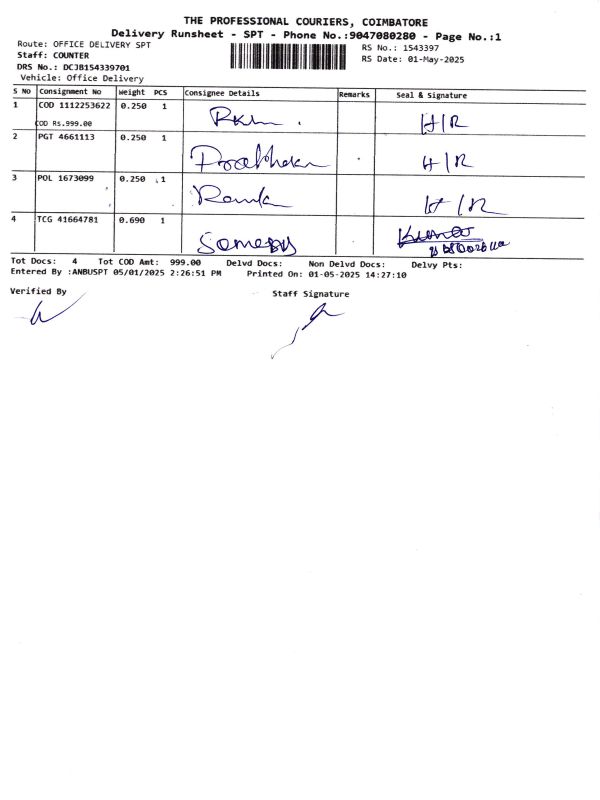 THE PROFESSIONAL COURIERS, COIMBATORE
Delivery Runsheet - SPT - Phone No.:9047080280 - Page No.:1
Route: OFFICE DELIVERY SPT
RS No.: 1543397
Staff: COUNTER
RS Date: 01-May-2025
DRS No.: DCJB154339701
Vehicle: Office Delivery
S No Consignment No Weight PCS Consignee Details Remarks Seal & Signature
1 COD 1112253622 0.250 1
COD Rs.999.00 H/R
2 PGT 4661113 0.250 1
Prabhakar H/R
3 POL 1673099 0.250 1
H/R
4 TCG 41664781 0.690 1
Tot Docs: 4 Tot COD Amt: 999.00 Delvd Docs: Non Delvd Docs: Delvy Pts:
Entered By :ANBUSPT 05/01/2025 2:26:51 PM Printed On: 01-05-2025 14:27:10
Verified By Staff Signature